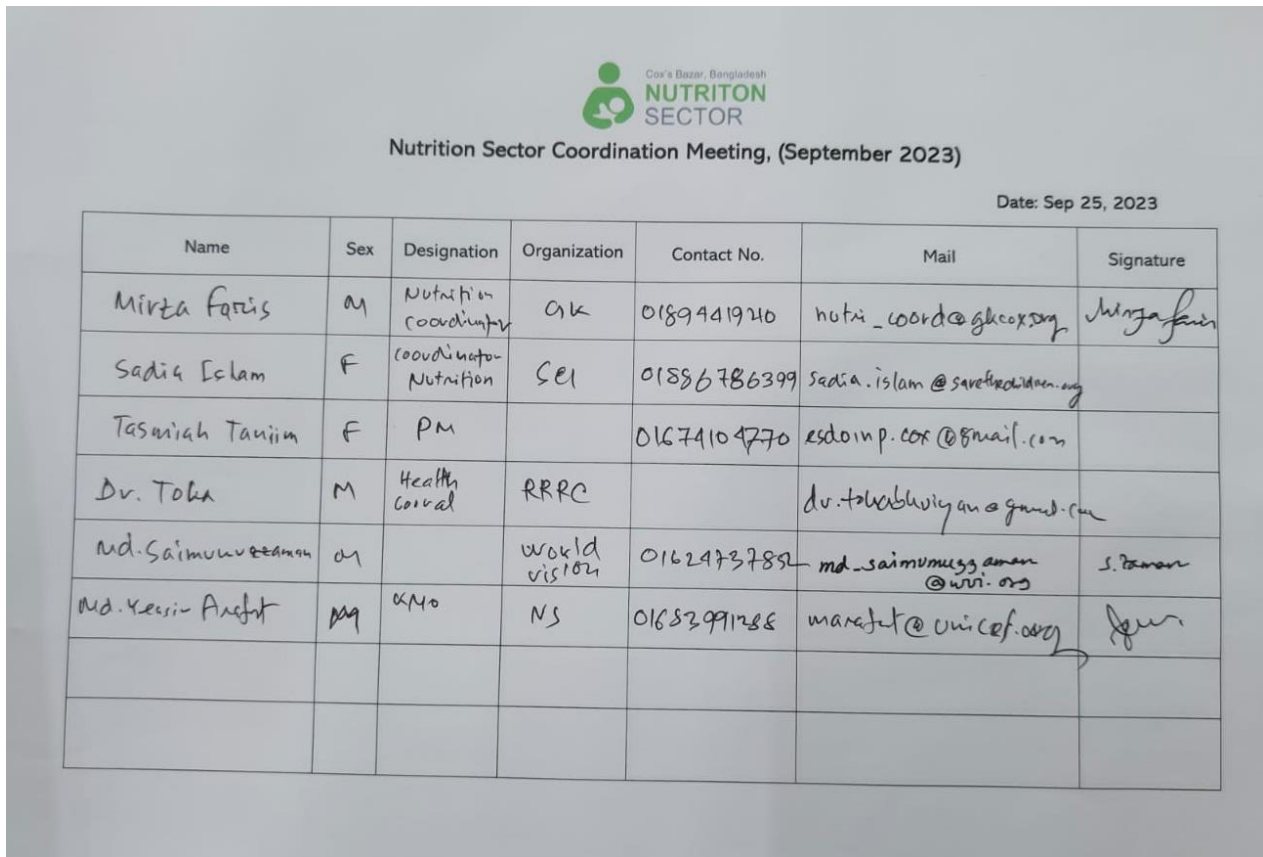 Cox's Bazar, Bangladesh
NUTRITON
SECTOR
Nutrition Sector Coordination Meeting, (September 2023)
Date: Sep 25, 2023
Name Sex Designation Organization Contact No. Mail Signature
Mirza Faris M Nutrition coordinator GK 0189441940 nutri_coord@gkcox.org Mirza Faris
Sadia Islam F Coordinator Nutrition SCI 01886786399 sadia.islam@savethechildren.org
Tasmiah Tanjim F PM 01674104770 esdoinp.cox@gmail.com
Dr. Toha M Health RRRC dr.tohabhuiyan@gmail.com
Md. Saimunuzzaman M World Vision 01624737852 md_saimumuzzaman@wvi.org S. Zaman
Md. Yeasir Arafat M NS 01683991288 marafat@unicef.org